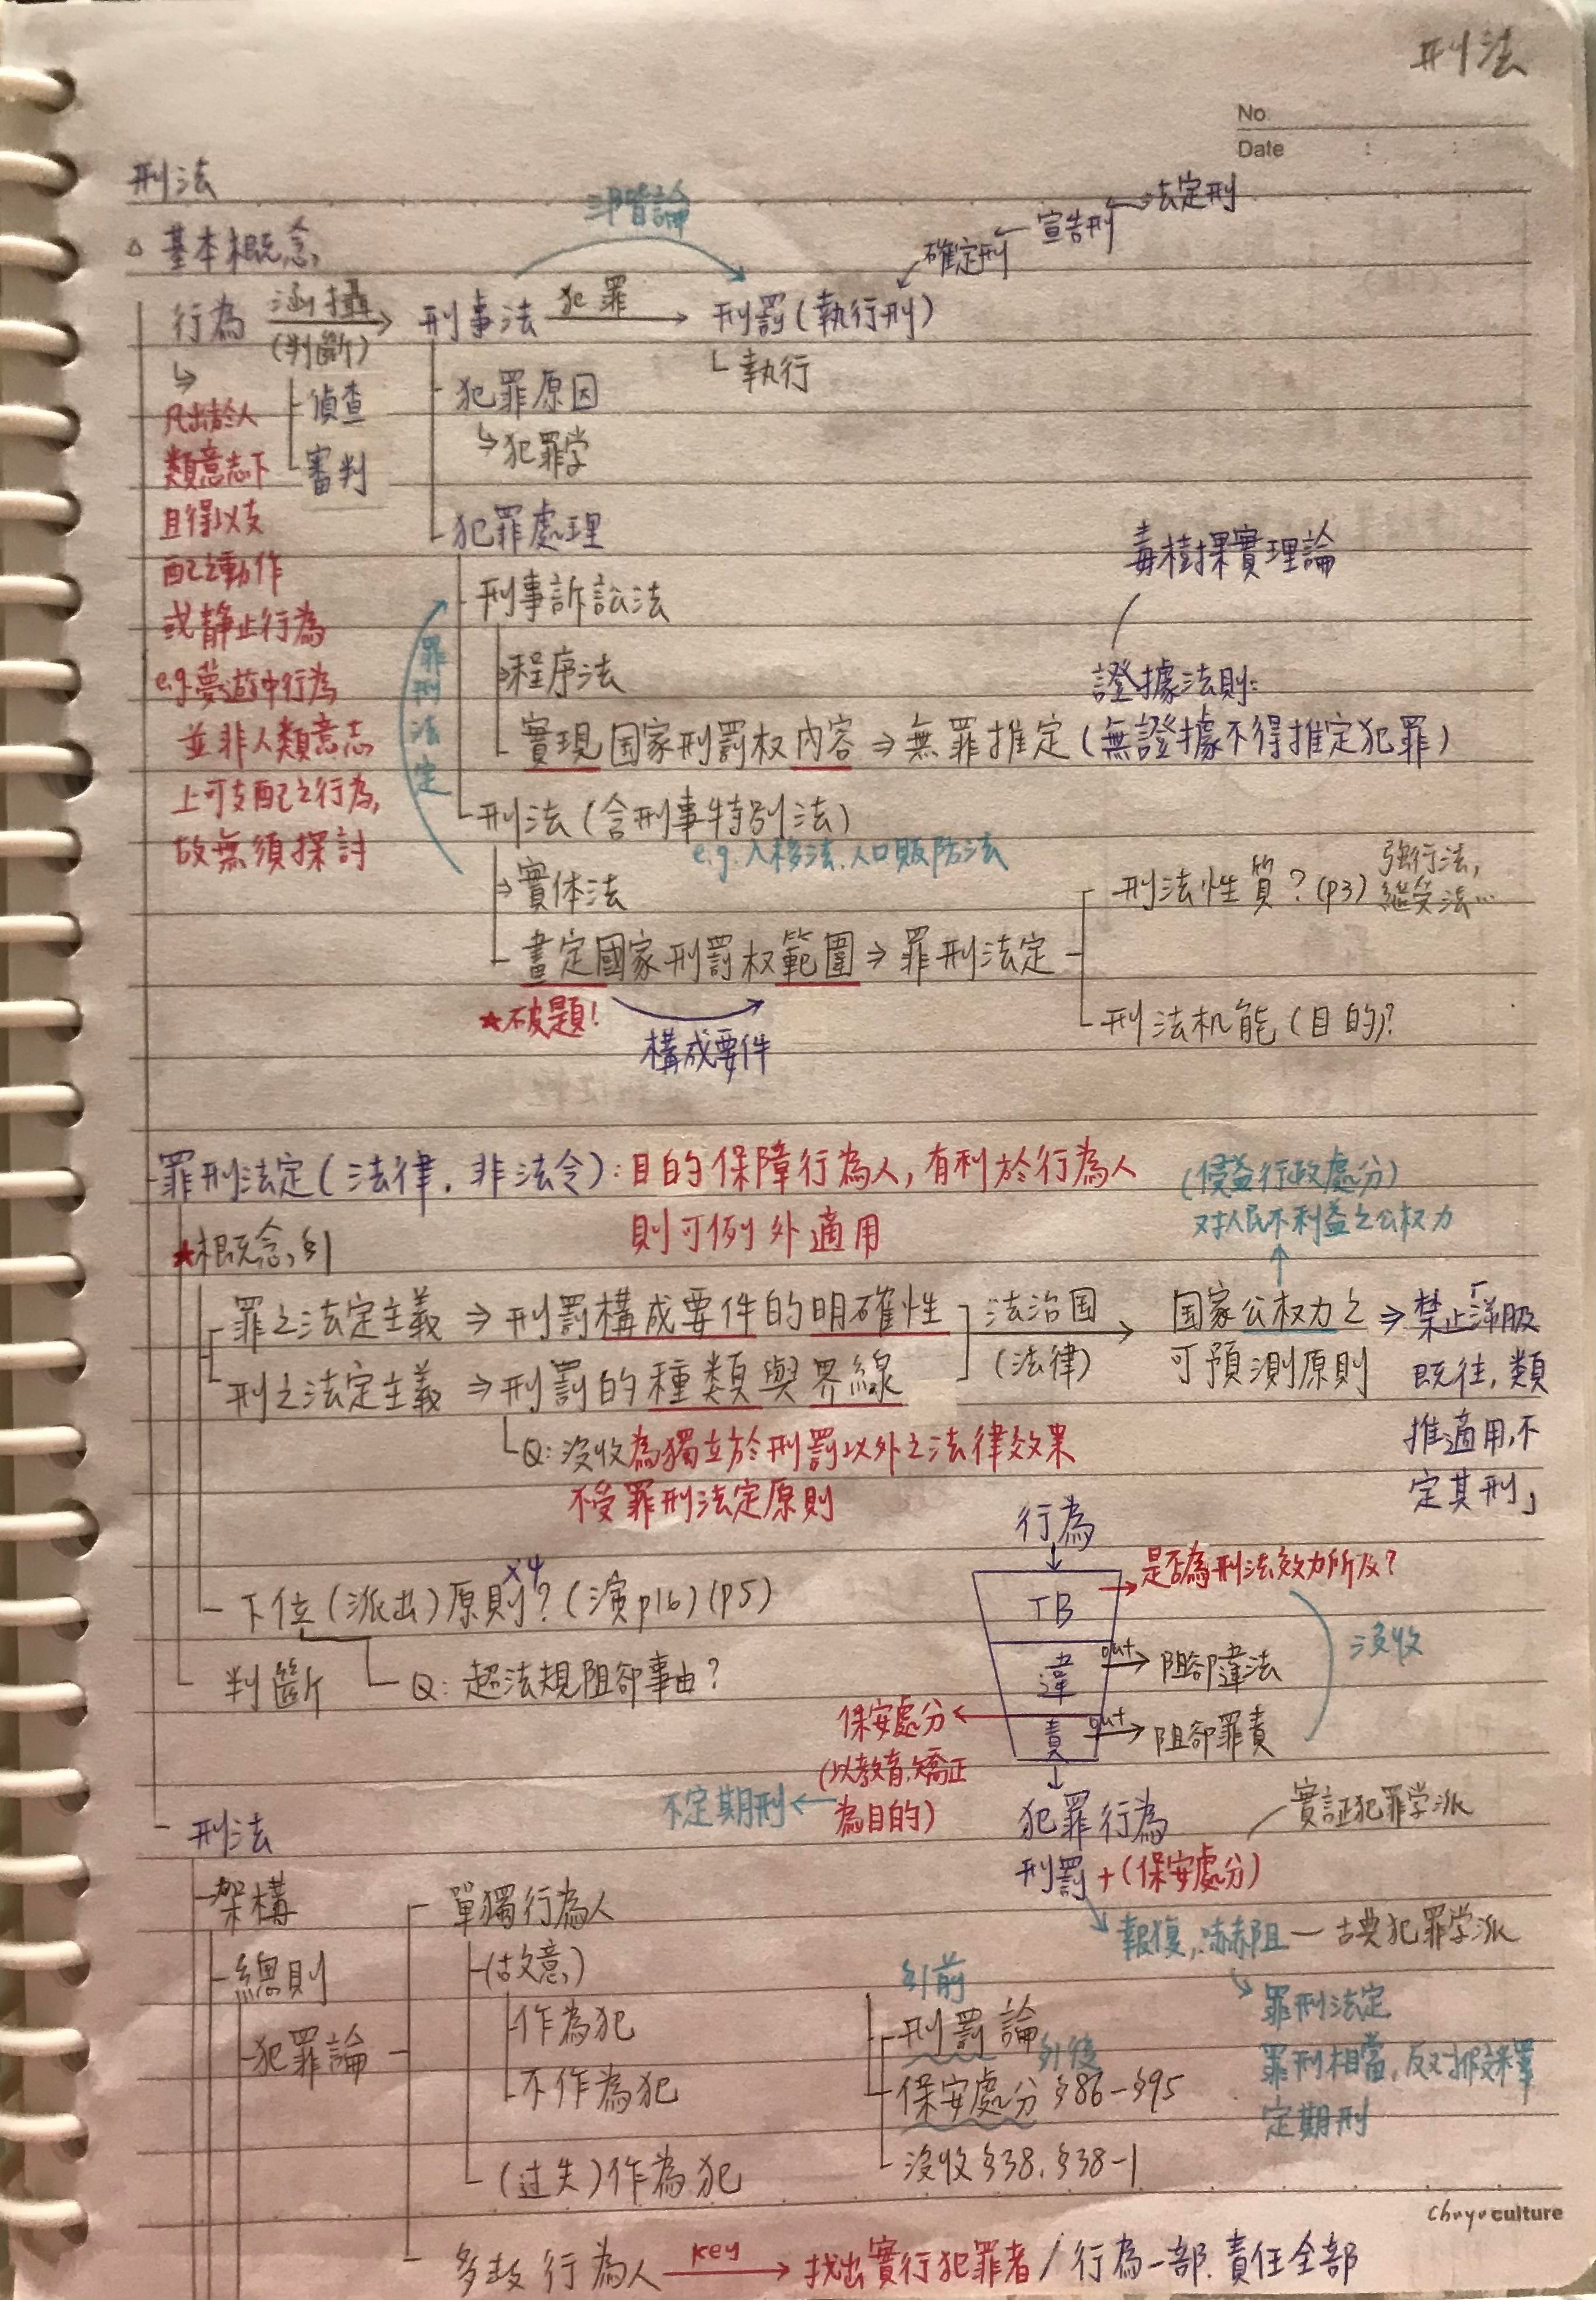 刑法
No.
Date : :
刑法
△ 基本概念
三階論
法定刑
宣告刑
確定刑
行為 涵攝 (判斷) → 刑事法 犯罪 → 刑罰(執行刑)
執行
偵查
審判
凡出於人
類意志下
且得以支
配之動作
或靜止行為
e.g.夢遊中行為
並非人類意志
上可支配之行為,
故無須探討
犯罪原因
↳犯罪学
犯罪處理
刑事訴訟法
程序法
實現国家刑罰权内容 ⇒ 無罪推定(無證據不得推定犯罪)
毒樹果實理論
證據法則:
罪刑法定
刑法(含刑事特別法)
e.g.人移法.人口販防法
實体法
畫定國家刑罰权範圍 ⇒ 罪刑法定
★破題!
構成要件
刑法性質?(p3) 強行法,
繼受法…
刑法机能(目的)?
罪刑法定(法律.非法令):目的保障行為人,有利於行為人
則可例外適用
(侵益行政處分)
对人民不利益之公权力
★概念,§1
罪之法定主義 ⇒ 刑罰構成要件的明確性
刑之法定主義 ⇒ 刑罰的種類與界線
法治国
(法律)
国家公权力之
可預測原則
⇒禁止「溯及
既往,類
推適用,不
定其刑」
Q:沒收為獨立於刑罰以外之法律效果
不受罪刑法定原則
下位(派出)原則?(演p16)(p5)
x4
判斷
Q:超法規阻卻事由?
行為
TB
→是否為刑法效力所及?
違
out→阻卻違法
責
out→阻卻罪責
沒收
保安處分
(以教育,矯正
為目的)
不定期刑
犯罪行為
刑罰+(保安處分)
實証犯罪学派
報復,嚇阻—古典犯罪学派
罪刑法定
罪刑相當,反对
定期刑
刑法
架構
總則
犯罪論
單獨行為人
(故意)
作為犯
不作為犯
(过失)作為犯
刑前
刑罰論
刑後
保安處分§86-§95
沒收§38.§38-1
多數行為人 key → 找出實行犯罪者/行為一部.責任全部
Chuyu culture